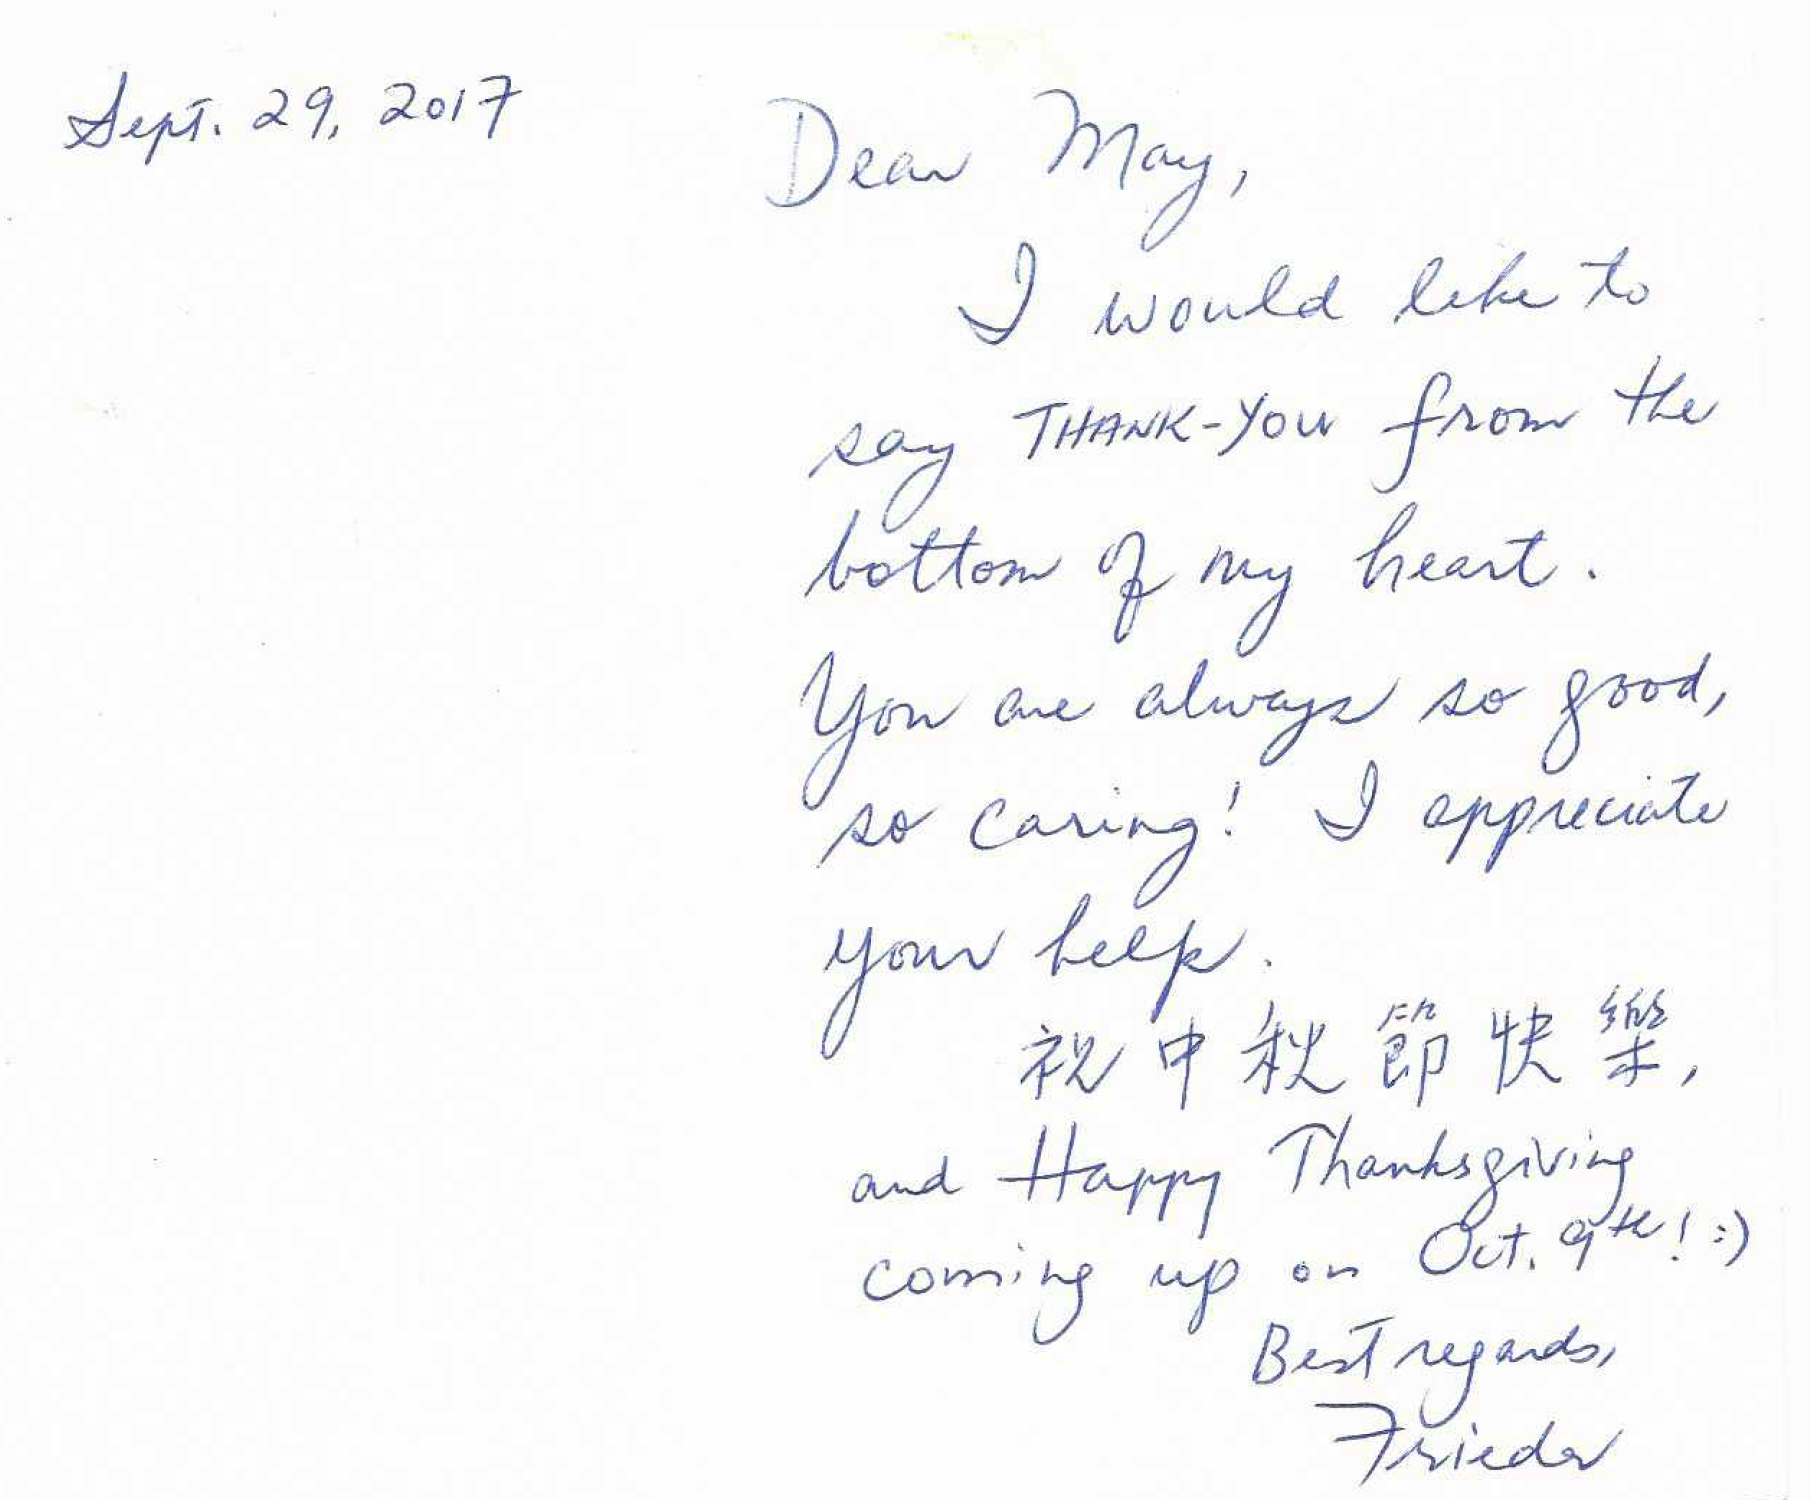 Sept. 29, 2017
Dear May,
I would like to
say THANK-YOU from the
bottom of my heart.
You are always so good,
so caring! I appreciate
your help.
祝中秋節快樂,
and Happy Thanksgiving
coming up on Oct. 9th! :)
Best regards,
Frieda